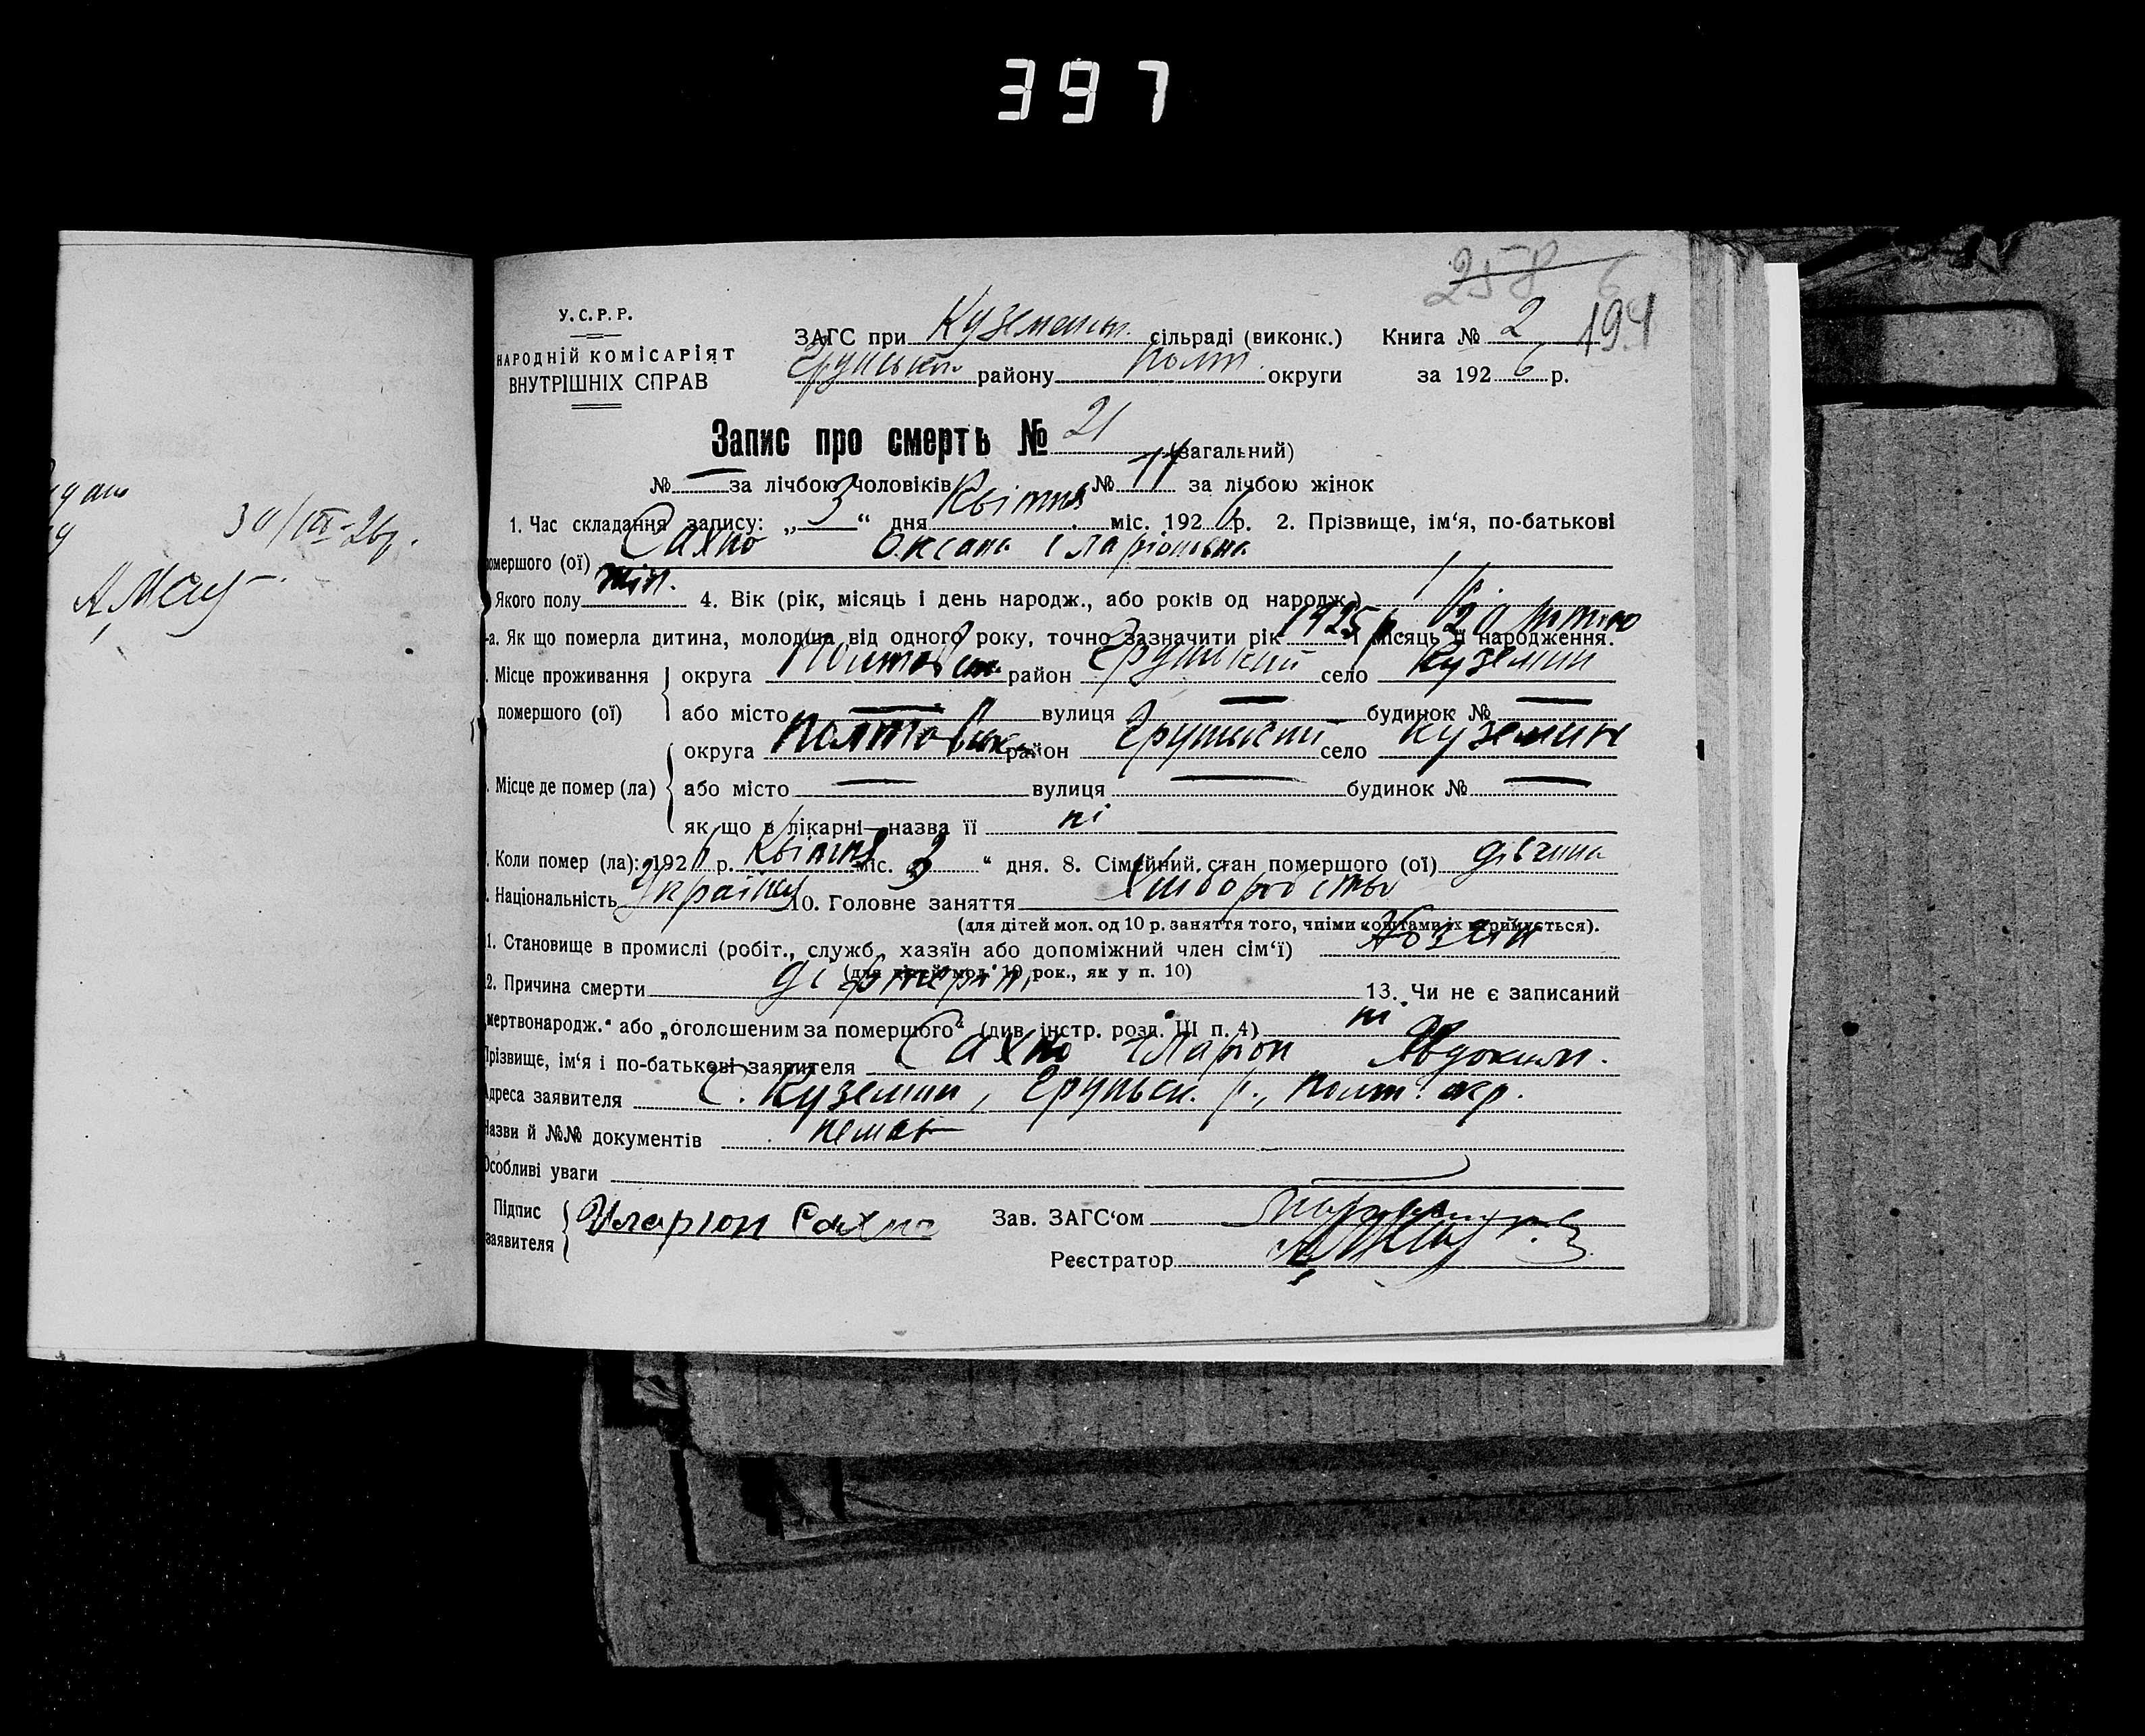 397
258 6
194
У.С.Р.Р.
НАРОДНІЙ КОМІСАРІЯТ
ВНУТРІШНІХ СПРАВ
ЗАГС при Куземенськ. сільраді (виконк.) Книга № 2
Грунському району Полт. округи за 1926 р.
Запис про смерть № 21 (загальний)
№ — за лічбою чоловіків № 11 за лічбою жінок
1. Час складання запису: „3“ дня Квітня міс. 1926 р. 2. Прізвище, ім‘я, по-батькові
омершого (ої) Сахно Оксана Іларіоновна
Якого полу жін. 4. Вік (рік, місяць і день народж., або років од народж.)
-а. Як що померла дитина, молодша від одного року, точно зазначити рік 1925 р. і місяць її народження.
Місце проживання округа Полтавськ. район Грунський село Куземин
помершого (ої) або місто — вулиця — будинок № —
округа Полтавськ. район Грунський село Куземин
Місце де помер (ла) або місто — вулиця — будинок № —
як що в лікарні—назва її ні
Коли помер (ла): 1926 р. Квітня міс. 3 “ дня. 8. Сімейний стан помершого (ої) дівчина
Національність Україн. 10. Головне заняття Хліборобство
(для дітей мол. од 10 р. заняття того, чиїми коштами їх втримується).
1. Становище в промислі (робіт., служб., хазяїн або допоміжний член сім‘ї) Хозяїн
(для дітей мол. 10 рок., як у п. 10)
2. Причина смерти діфтеріт 13. Чи не є записаний
„мертвонародж.“ або „оголошеним за помершого“ (див. інстр. розд. III п. 4) ні
Прізвище, ім‘я і по-батькові заявителя Сахно Іларіон Явдоким.
Адреса заявителя С. Куземин, Грунськ. р., Полт. окр.
Назви й №№ документів немає
Особливі уваги
Підпис
заявителя Иларіон Сахно Зав. ЗАГС‘ом
Реєстратор